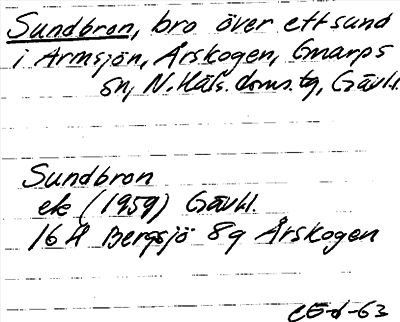 Sundbron, bro över ett sund
i Armsjön, Årskogen, Gnarps
sn, N. Häls. doms. tg, Gävl.
Sundbron
ek (1959) Gävl.
16 H Bergsjö 8g Årskogen